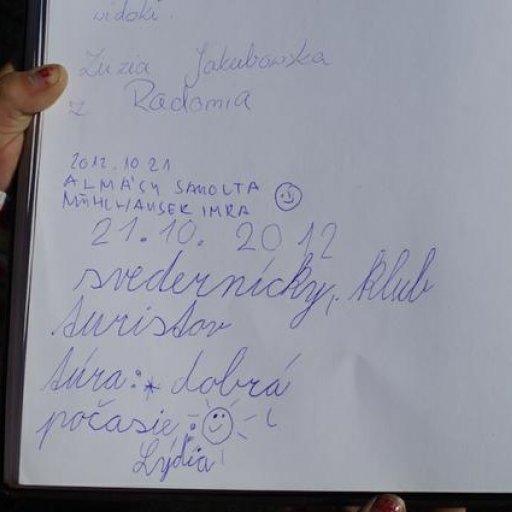 widoki.
Zuzia Jakubowska
z Radomia
2012.10 21
ALMÁSY SAROLTA
MÜHLHAUSER IMRA
21.10. 2012
svedernícky, klub
turistov
túra:* dobrá
počasie:
Lýdia